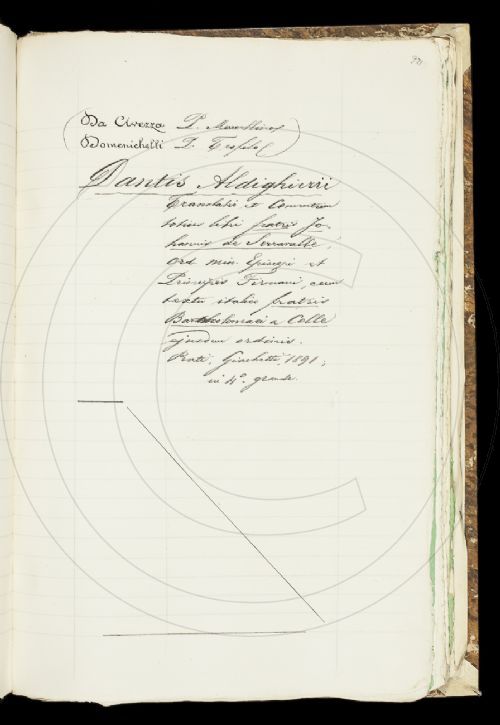 Da Civezza P. Marcellino
Domenichelli P. Teofilo
Dantis Aldighierii
Translatio et Commentum
totius libri fratris Jo-
hannis de Serravalle,
Ord. min. Episcopi et
Principis Firmani, cum
textu italico fratris
Bartholomaei a Colle
ejusdem ordinis.
Prati, Giachetti, 1891,
in 4.° grande.